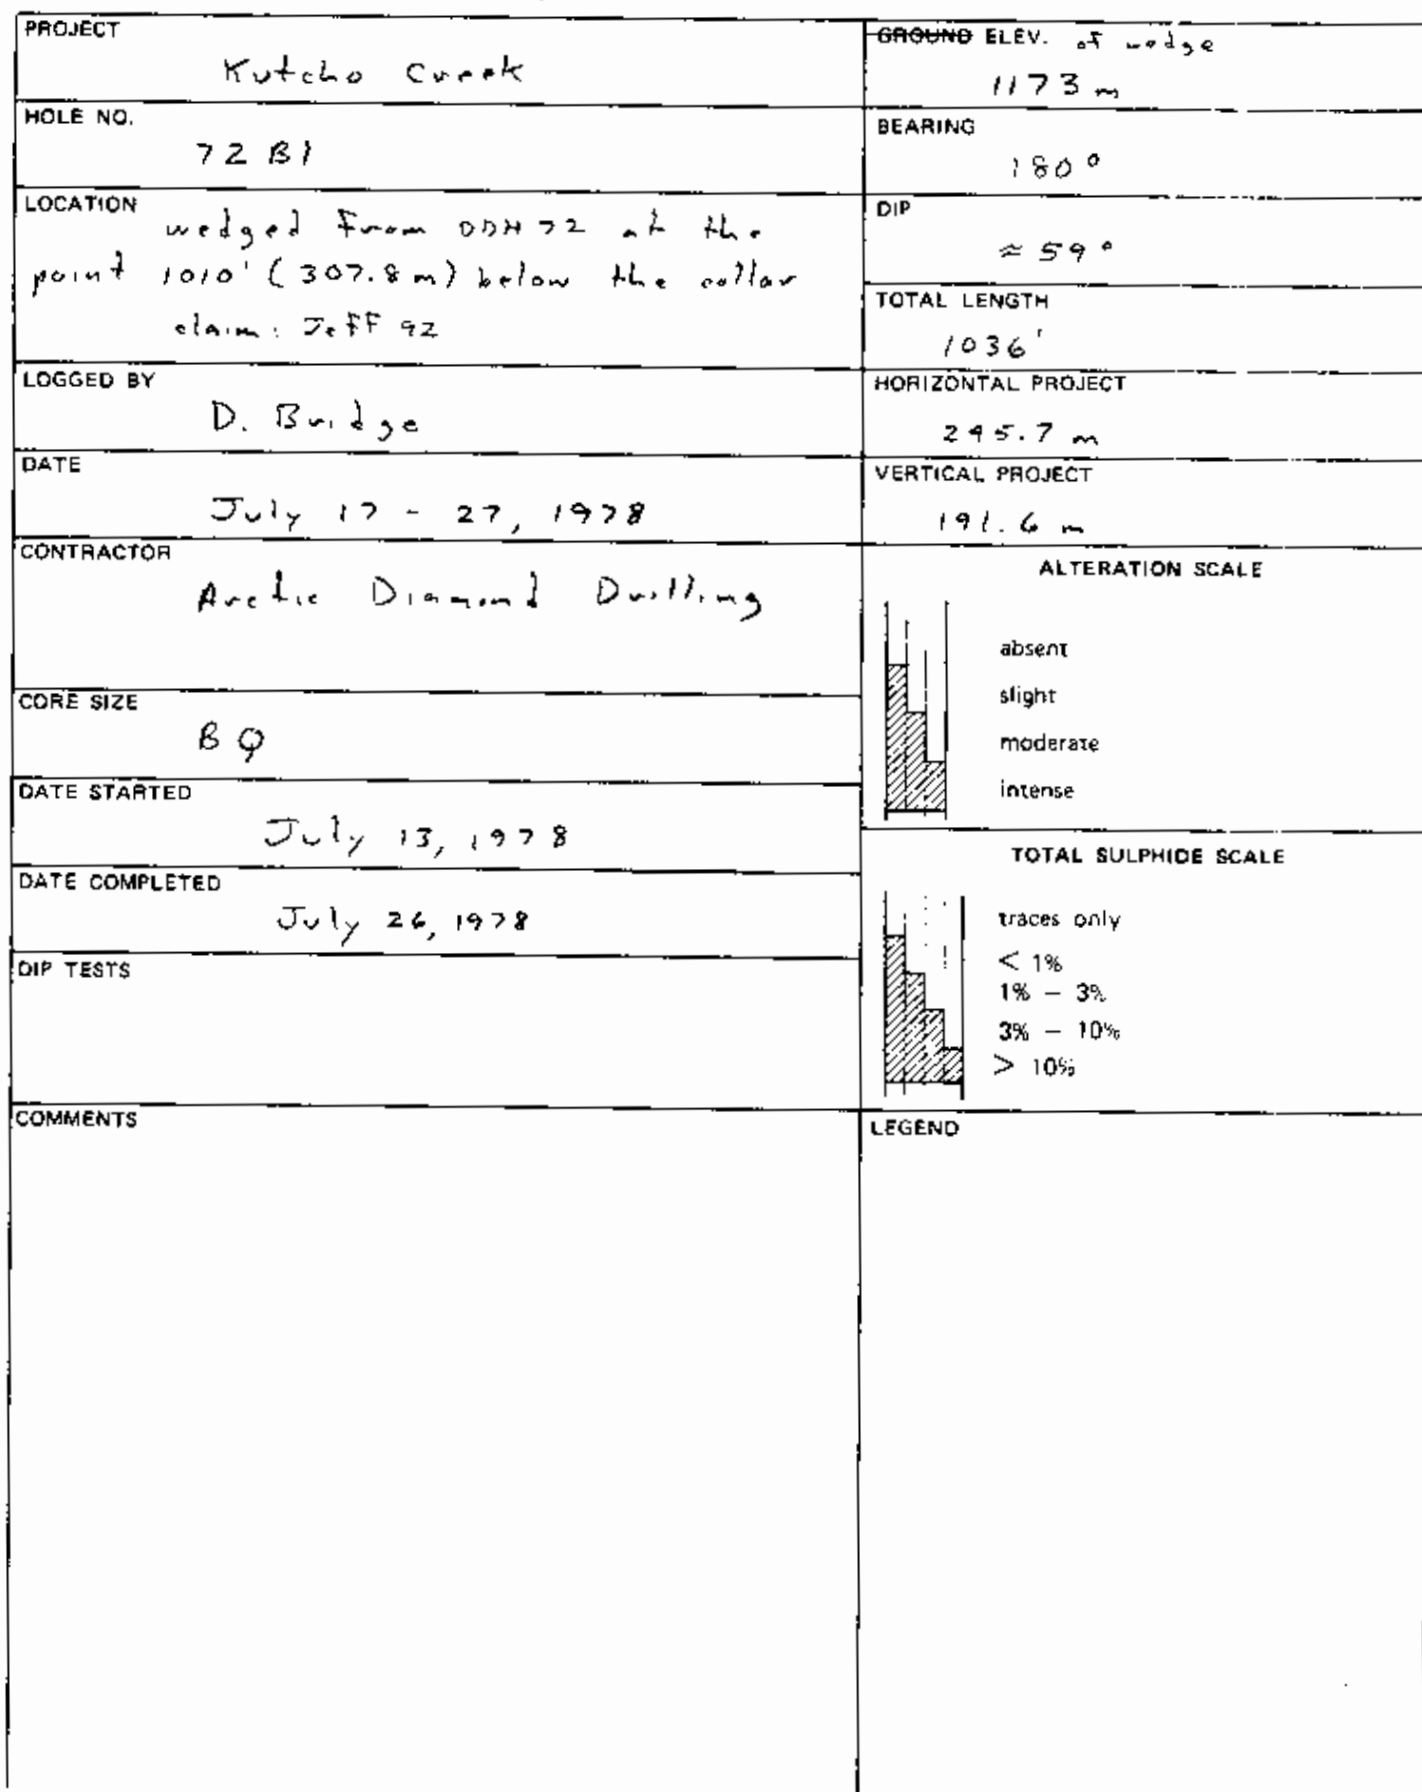 PROJECT
Kutcho Creek
HOLE NO.
72 B1
LOCATION
wedged from DDH 72 at the
point 1010' (307.8 m) below the collar
claim: Jeff 92
LOGGED BY
D. Bridge
DATE
July 17 - 27, 1978
CONTRACTOR
Arctic Diamond Drilling
CORE SIZE
BQ
DATE STARTED
July 13, 1978
DATE COMPLETED
July 26, 1978
DIP TESTS
COMMENTS
GROUND ELEV. of wedge
1173 m
BEARING
180°
DIP
≈ 59°
TOTAL LENGTH
1036'
HORIZONTAL PROJECT
245.7 m
VERTICAL PROJECT
191.6 m
ALTERATION SCALE
absent
slight
moderate
intense
TOTAL SULPHIDE SCALE
traces only
< 1%
1% – 3%
3% – 10%
> 10%
LEGEND